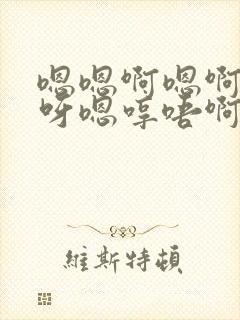 嗯嗯啊嗯啊
呀嗯哼唔啊
維斯特頓